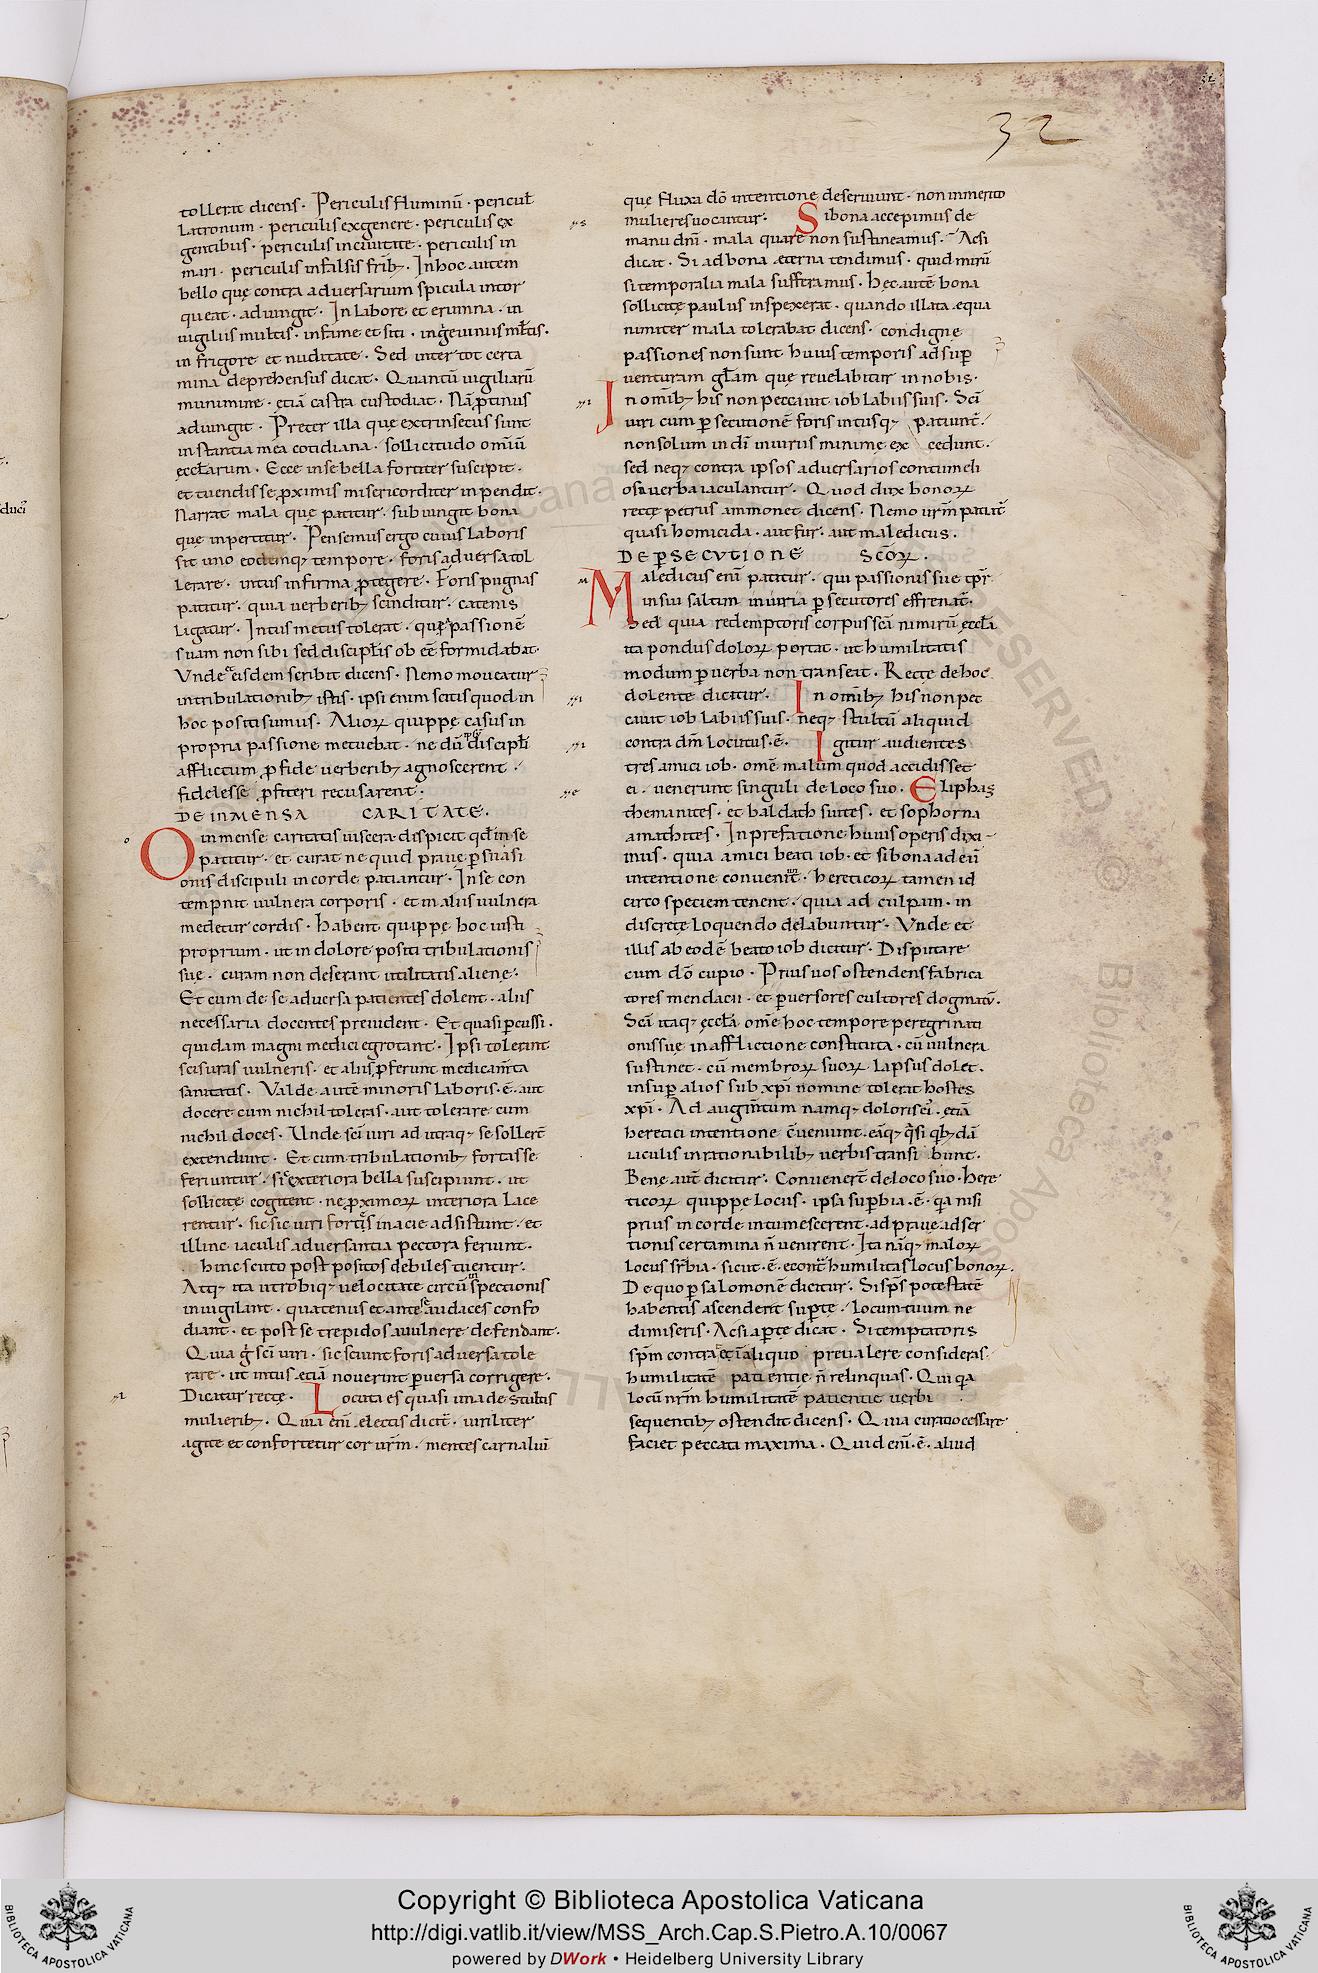 32
tollerat dicens. Periculis fluminū. pericul̄
latronum. periculis ex genere. periculis ex
gentibus. periculis in ciuitate. periculis in
mari. periculis in falsis frib;. In hoc autem
bello quę contra aduersarium spicula intor
queat. adiungit. In labore et erumna. in
uigiliis multis. in fame et siti. in ieiuniis mltis.
in frigore et nuditate. Sed inter tot certa
mina deprehensus dicat. Quantū uigiliarū
munimine. etiā castra custodiat. Nā ptinus
adiungit. Preter illa que extrinsecus sunt
instantia mea cotidiana. sollicitudo omiū
ęccłarum. Ecce in se bella fortiter suscipit.
et tuendis se pximis misericorditer inpendit.
Narrat mala quę patitur. subiungit bona
quę inpertitur. Pensemus ergo cuius laboris
sit uno eodemq; tempore. foris aduersa tol
lerare. intus infirma ptegere. Foris pugnas
patitur. quia uerberib; scinditur. catenis
ligatur. Intus metus tolerat. qui passionē
suam non sibi sed discipłis ob eē formidabat.
Vnde & eisdem scribit dicens. Nemo moueatur
in tribulationib; istis. ipsi enim scitis quod in
hoc positi sumus. Aliorꝝ quippe casus in
propria passione metuebat. ne dū discipłi
afflictum p fide uerberib; agnoscerent.
fideles se pfiteri recusarent.
DE INMENSA CARITATE.
O inmense caritatis uiscera dispicit qd in se
patitur. et curat ne quid praue psuasi
onis discipuli in corde patiantur. In se con
tempnit uulnera corporis. et in aliis uulnera
medetur cordis. Habent quippe hoc iusti
proprium. ut in dolore positi tribulationis
suę. curam non deserant utilitatis alienę.
Et cum de se aduersa patientes dolent. aliis
necessaria docentes preuident. Et quasi pcussi.
quidam magni medici egrotant. Ipsi tolerant
scisuras uulneris. et aliis pferunt medicamta
sanitatis. Valde autē minoris laboris. ē. aut
docere cum nichil toleras. aut tolerare cum
nichil doces. Unde sci uiri ad utraq; se sollert
extendunt. Et cum tribulationib; fortasse
feriuntur. sic exteriora bella suscipiunt. ut
sollicite cogitent. ne pximorꝝ interiora lace
rentur. sic sic uiri fortes in acie adsistunt. et
illinc iaculis aduersantia pectora feriunt.
hinc scuto post positos debiles tuentur.
Atq; ita utrobiq; uelocitate circū spectionis
inuigilant. quatenus et ante se audaces confo
diant. et post se trepidos a uulnere defendant.
Quia g sci uiri. sic sciunt foris aduersa tole
rare. ut intus etiā nouerint puersa corrigere.
Dicatur recte. Locuta es quasi una de stultis
mulierib;. Quia eni electis dictē. uiriliter
agite et confortetur cor urm. mentes carnaliū
quę fluxa dō intentione deseruiunt. non inmerito
mulieres uocantur. Si bona accepimus de
manu dni. mala quare non sustineamus. Acsi
dicat. Si ad bona eterna tendimus. quid mirū
si temporalia mala sufferamus. Hęc autē bona
sollicite paulus inspexerat. quando illata equa
nimiter mala tolerabat dicens. condigne
passiones non sunt huius temporis ad sup
uenturam głam quę reuelabitur in nobis.
In omib; his non peccauit iob labiis suis. Sci
uiri cum psecutionē foris intusq; patiunt.
non solum in di iniuriis minime ex cedunt.
sed neq; contra ipsos aduersarios contumeli
osa uerba iaculantur. Quod dux bonorꝝ
recte petrus ammonet dicens. Nemo urm patiat
quasi homicida. aut fur. aut maledicus.
DE PSECVTIONE SCORꝝ.
Maledicus eni patitur. qui passionis sue tpr
in sui saltim iniuria psecutores effrenat.
Sed quia redemptoris corpus sca nimirū ęccła
ita pondus dolorꝝ portat. ut humilitatis
modum p uerba non transeat. Recte de hoc
dolente dicitur. In omib; his non pec
cauit iob labiis suis. neq; stultū aliquid
contra dm locutus. ē. Igitur audientes
tres amici iob. omē malum quod accidisset
ei. uenerunt singuli de loco suo. Eliphaz
themanites. et baldath suites. et sophorna
amathites. In prefatione huius operis dixi
mus. quia amici beati iob. et si bona ad eū
intentione conueniunt. hereticorꝝ tamen id
circo speciem tenent. quia ad culpam. in
discrete loquendo delabuntur. Vnde et
illis ab eodē beato iob dicitur. Disputare
cum dō cupio. Prius uos ostendens fabrica
tores mendacii. et puersores cultores dogmatū.
Sca itaq; ęccła ome hoc tempore peregrinati
onis suę in afflictione constituta. cū uulnera
sustinet. cū membrorꝝ suorꝝ lapsus dolet.
insup alios sub xpi nomine tolerat hostes
xpi. Ad augmtum namq; doloris ei. etiā
heretici intentione cueniunt. eāq; qsi qb;dā
iaculis inrationabilib; uerbis transi bunt.
Bene aut dicitur. Conuenert de loco suo. Here
ticorꝝ quippe locus. ipsa supbia. ē. qa nisi
prius in corde intumescerent. ad praue adser
tionis certamina n uenirent. Ita naq; malorꝝ
locus supbia. sicut. ē. econt humilitas locus bonorꝝ.
De quo p salomonē dicitur. Si sps potestatē
habentis ascenderit sup te. locum tuum ne
dimiseris. Acsi apte dicat. Si temptatoris
spm contra te in aliquo preualere consideras.
humilitatē patientie n relinquas. Qui qa
locū nrm humilitatē patientie uerbi
sequentib; ostendit dicens. Quia curatio cessare
faciet peccata maxima. Quid eni. ē. aliud
Copyright © Biblioteca Apostolica Vaticana
http://digi.vatlib.it/view/MSS_Arch.Cap.S.Pietro.A.10/0067
powered by DWork • Heidelberg University Library